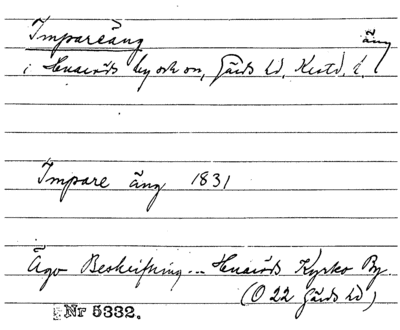 Impareäng äng
i Huaröds by och sn, Gärds hd, Krstd. l.
Impare äng 1831
Ägo Beskrifning... Huaröds Kyrko By.
(O 22 Gärds hd)
Nr 5332.